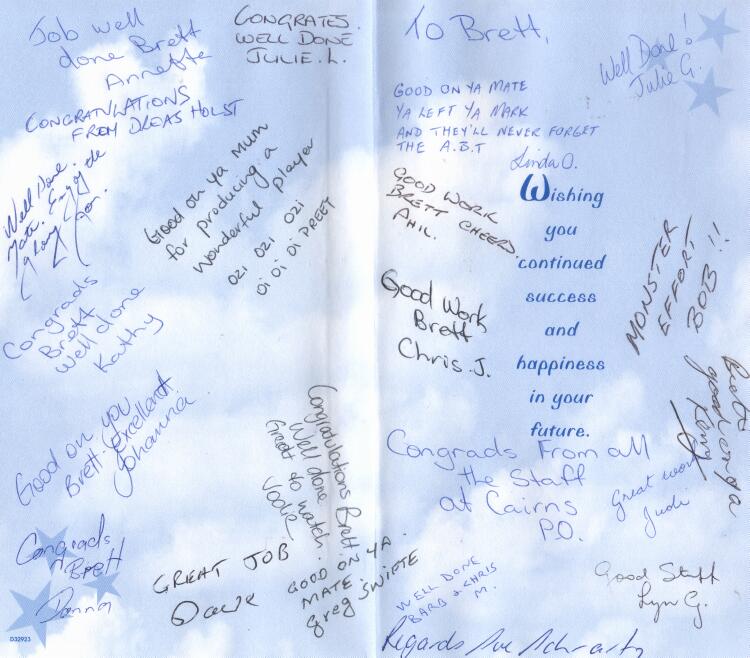 Job well
done Brett
Annette
CONGRATES.
WELL DONE
JULIE.L.
CONGRATULATIONS
FROM DREAS HOLST
Well Done.
Mate. Enjoy the
Good on ya mum
for producing a
wonderful player
OZI OZI OZI
Oi Oi Oi PREET
Congrads
Brett
Well done
Kathy
Good on you
Brett. Excellant
Johanna
Congratulations Brett.
Well done
Great to watch.
Congrads
Brett
Donna
GREAT JOB
Dave
GOOD ON YA.
MATE.
Greg SWIRTE
D32923
To Brett,
Well Done!
Julie G.
GOOD ON YA MATE
YA LEFT YA MARK
AND THEY'LL NEVER FORGET
THE A.B.T
Linda O.
GOOD WORK
BRETT CHEERS.
ANIL.
Wishing
you
continued
success
and
happiness
in your
future.
Good Work
Brett
Chris.J.
MONSTER
EFFORT
BOB!!
Brett
good on ya
Kerry
Congrads From all
the Staff
at Cairns
P.O.
Great work
Judi
WELL DONE
BARB & CHRIS
M.
Good Stuff
Lyn G.
Regards Sue